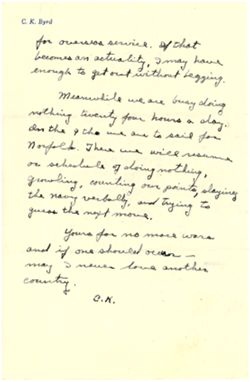 C. K. Byrd
for overseas service. If that
becomes an actuality, I may have
enough to get out without begging.
Meanwhile we are busy doing
nothing twenty four hours a day.
On the 9 th we are to sail for
Norfolk. There we will resume
our schedule of doing nothing,
growling, counting our points, slaying
the navy verbally, and trying to
guess the next move.
Yours for no more wars
and if one should occur —
may I never love another
country.
C.K.